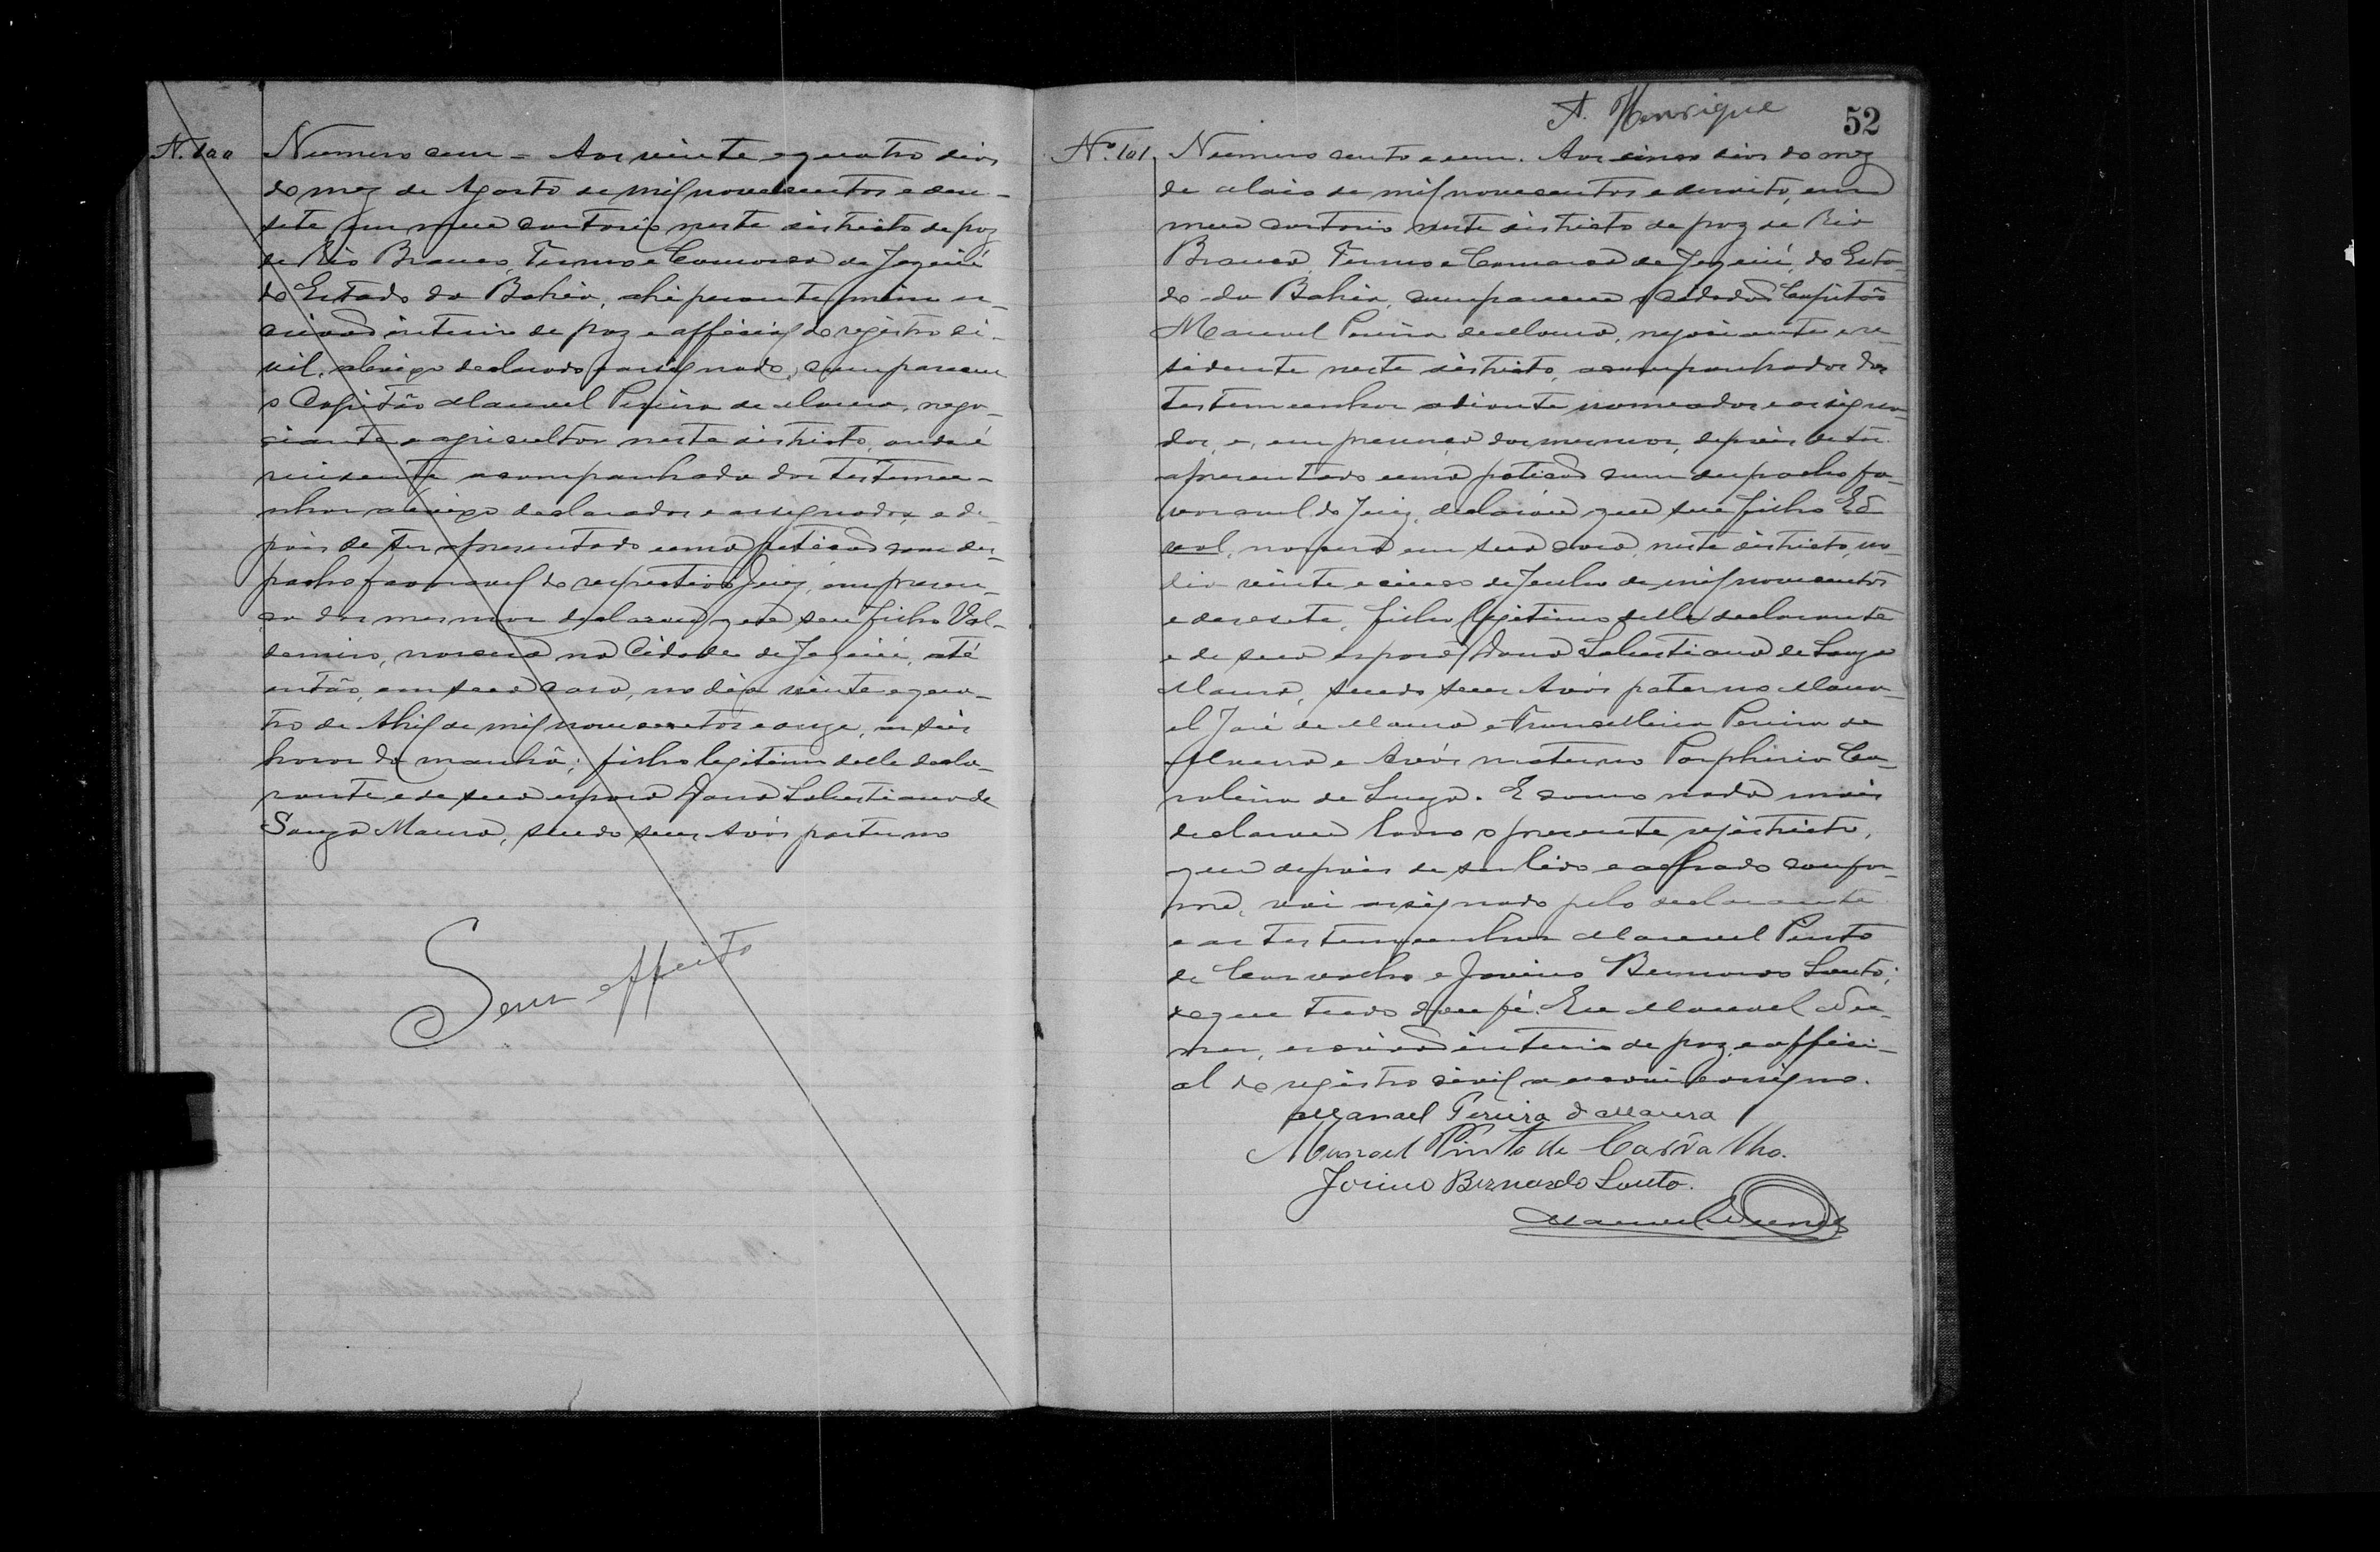 N. 100
Numero cem = Aos vinte e quatro dias
do mez de Agosto de mil novecentos e deze-
sete em meu cartorio neste districto de paz
de Rio Branco, Termo e Comarca de Jequié
do Estado da Bahia, ahi perante mim es-
crivão interino de paz e official do registro ci-
vil, abaixo declarado e assignado, compareceu
o Capitão Manuel Pereira de Moura, nego-
ciante e agricultor neste districto, onde é
residente acompanhado das testemu-
nhas abaixo declarados e assignados, e de-
pois de ter apresentado uma petição com des-
pacho favoravel do respectivo Juiz, em presen-
ça das mesmas declarou que seu filho Val-
demiro, nascera na Cidade de Jequié, até
então, em sua casa, no dia vinte e qua-
tro de Abril de mil novecentos e onze, as seis
horas da manhã; filho legitimo delle decla-
rante e de sua esposa Dona Salustiana de
Souza Moura, sendo seus Avós paterno
Sem effeito
A. Henrique
52
Nº 101.
Numero cento e um. Aos cinco dias do mez
de Maio de mil novecentos e dezoito, em
meu cartorio neste districto de paz de Rio
Branco, Termo e Comarca de Jequié, do Esta-
do da Bahia, compareceu o cidadão Capitão
Manuel Pereira de Moura, negociante e re-
sidente neste districto, acompanhado das
testemunhas adiante nomeadas e assigna-
das, e, em presença das mesmas, depois de ter
apresentado uma petição com despacho fa-
voravel do Juiz, declarou que seu filho Ed-
val, nascera em sua casa, neste districto, no
dia vinte e cinco de Junho de mil novecentos
e dezesete, filho legitimo delle declarante
e de sua esposa Dona Salustiana de Souza
Moura, sendo seus Avós paterno Manu-
el José de Moura e Francellina Pereira de
Moura e Avós materno Porphiria Ca-
rolina de Souza. E como nada mais
declarou lavro o presente registro,
que depois de ser lido e achado confor-
me, vai assignado pelo declarante
e as testemunhas Manuel Pinto
de Carvalho e Jovino Bernardo Souto;
do que tudo dou fé. Eu Manuel Nu-
nes, escrivão interino de paz e offici-
al do registro civil o escrevi e assigno.
Manoel Pereira de Moura
Manoel Pinto de Carvalho.
Jovino Bernardo Souto.
Manuel Nunes